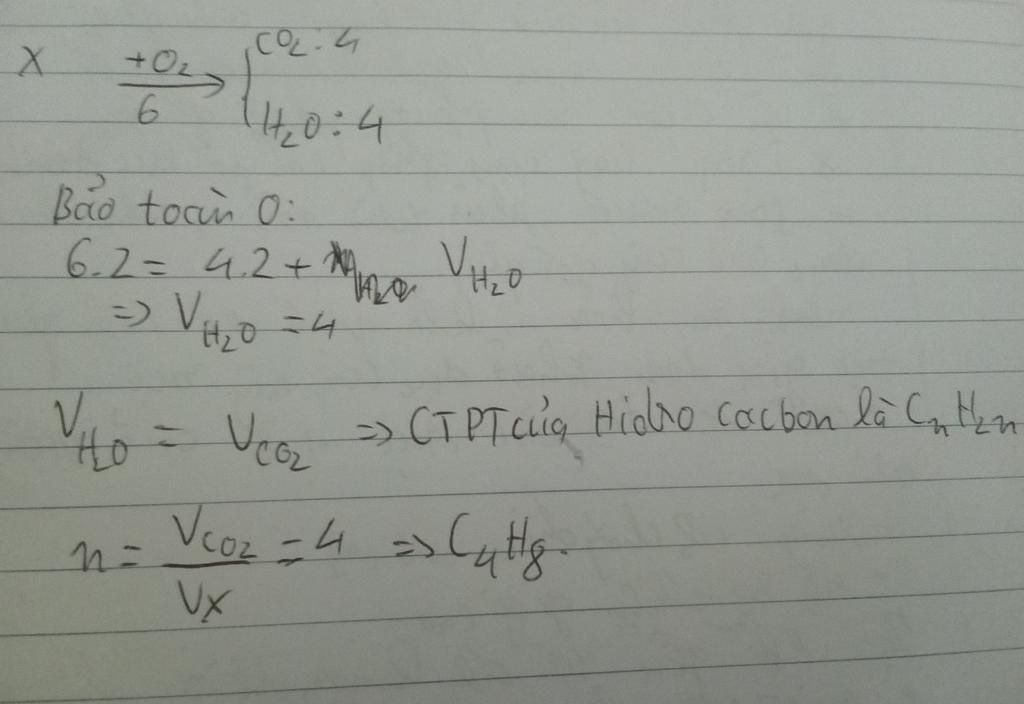 X +O₂ 6 → { CO₂ : 4
H₂O : 4
Bảo toàn O:
6.2 = 4.2 + V_H₂O
=> V_H₂O = 4
V_H₂O = V_CO₂ => CTPT của Hidro cacbon là CₙH₂ₙ
n = V_CO₂ / V_X = 4 => C₄H₈.